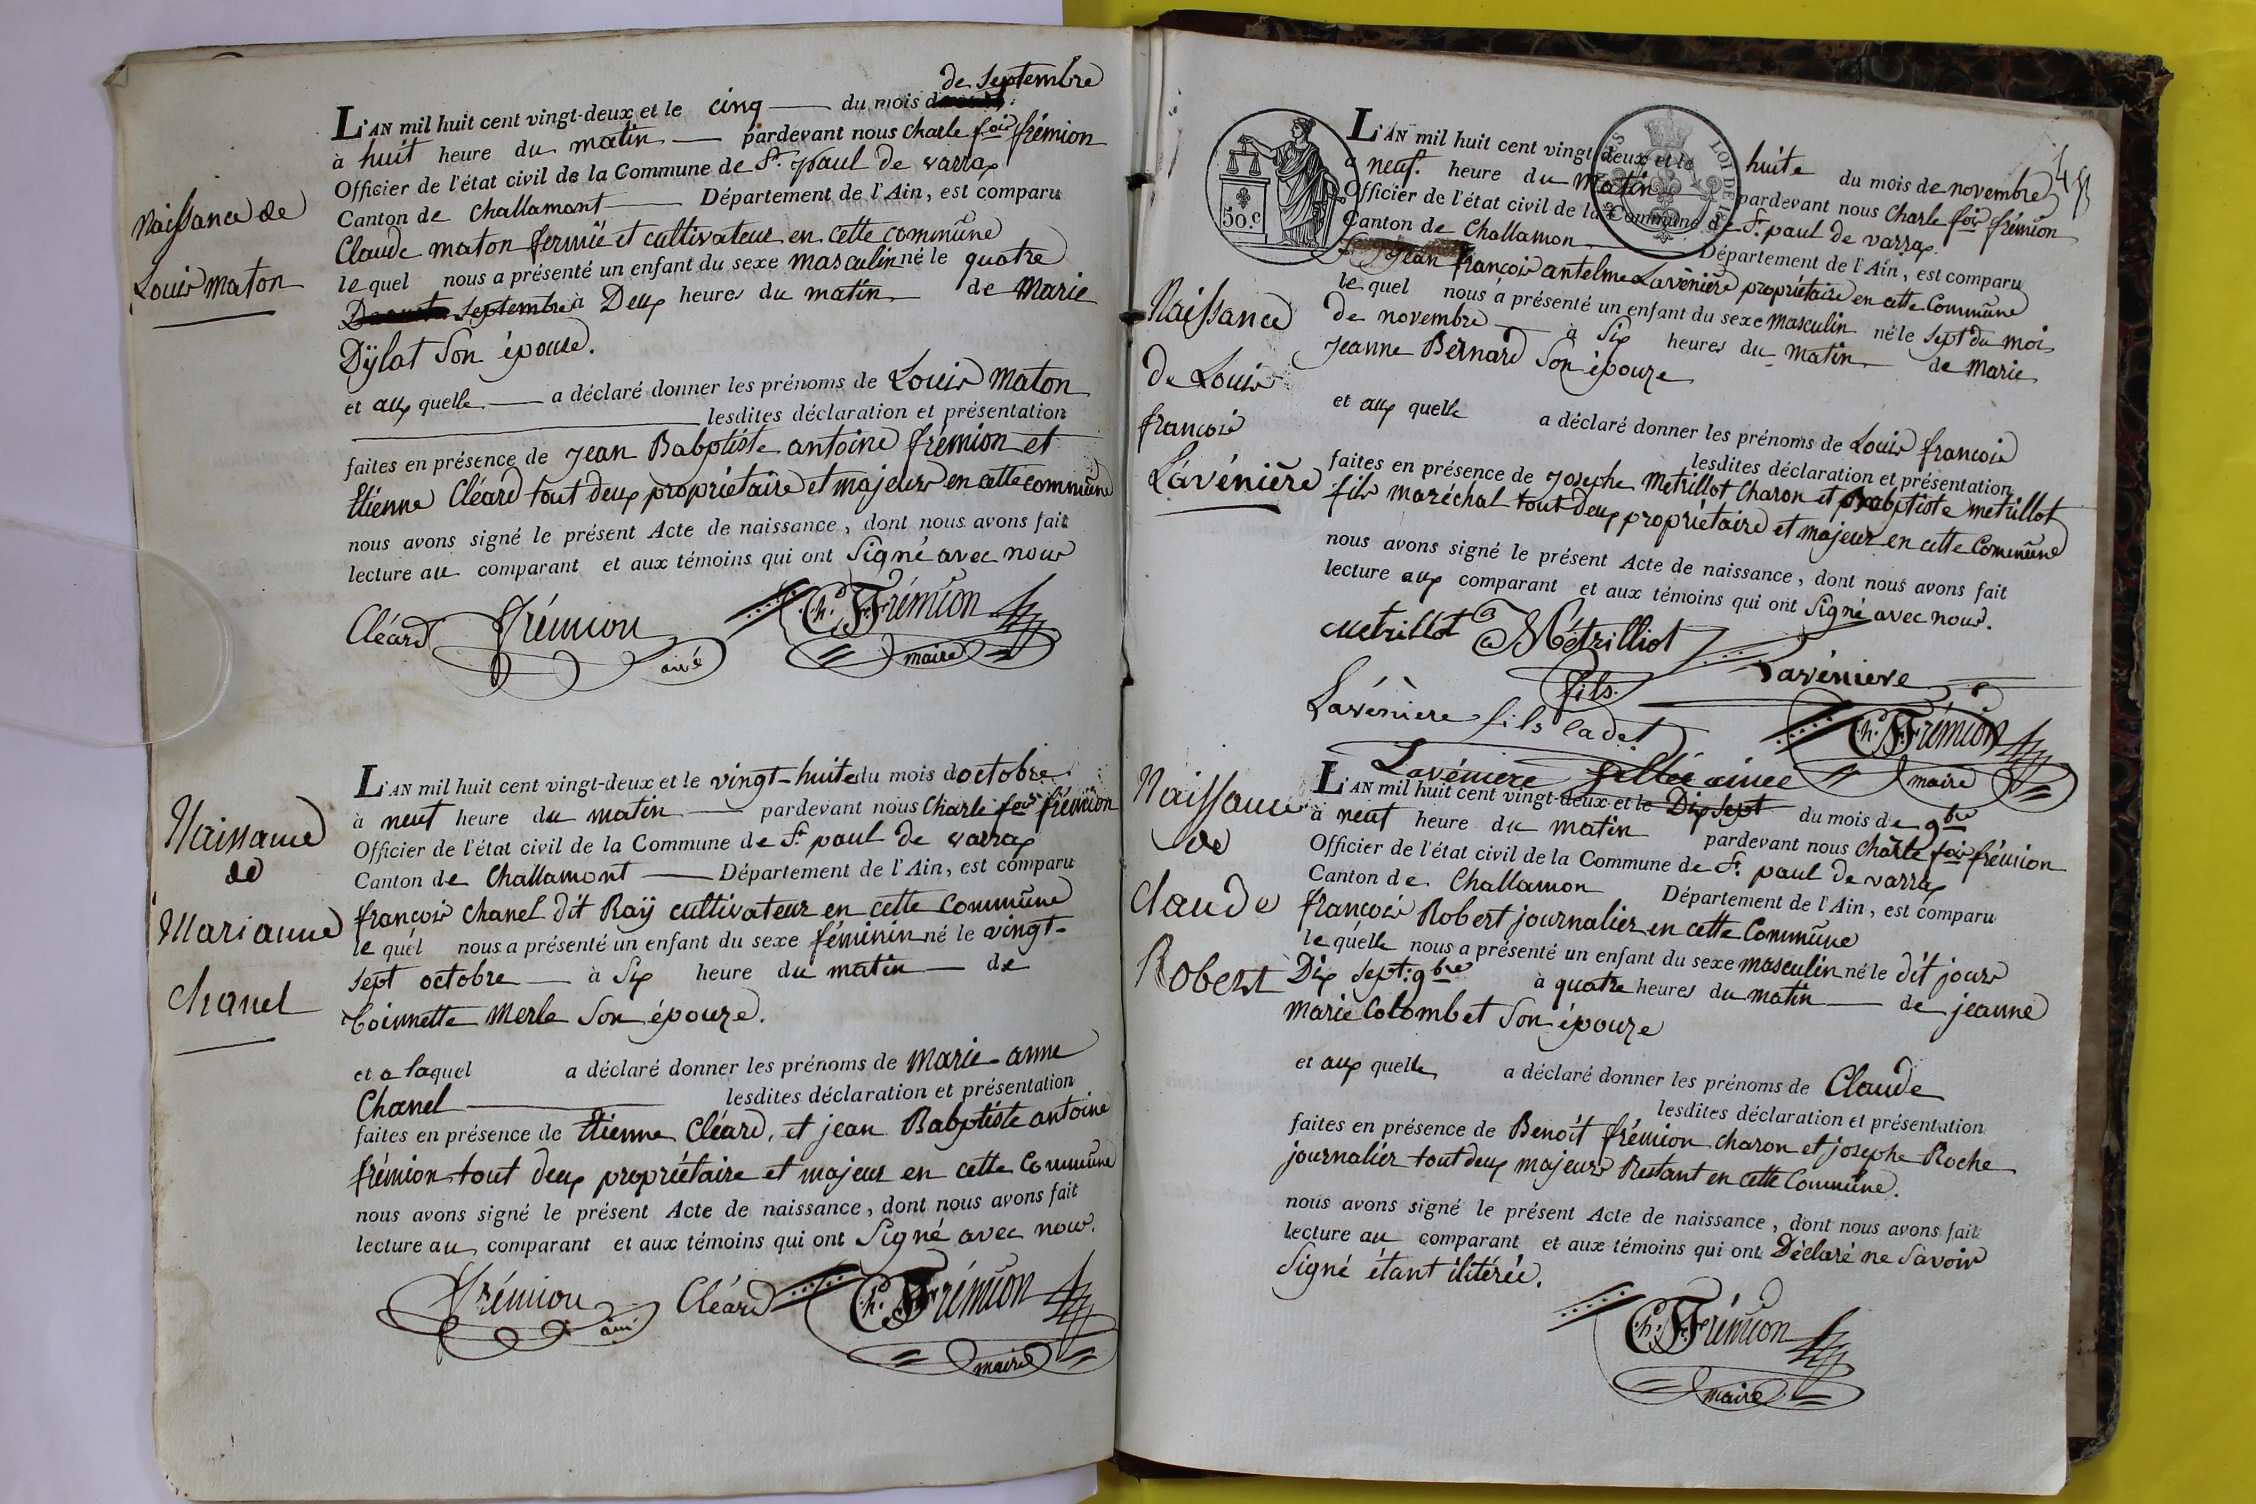 Naissance de
Louis maton
de septembre
L'AN mil huit cent vingt-deux et le cinq du mois
à huit heure du matin pardevant nous Charle fois frémion
Officier de l'état civil de la Commune de St. paul de varrax
Canton de Challamont Département de l'Ain, est comparu
Claude maton fermié et cultivateur en cette commune
le quel nous a présenté un enfant du sexe masculin né le quatre
septembre à Deux heures du matin de Marie
Dÿlat Son épouse.
et aux quelle a déclaré donner les prénoms de Louis Maton
lesdites déclaration et présentation
faites en présence de Jean Babptiste antoine frémion et
Etienne Cléard tout deux propriétaire et majeurs en cette commune
nous avons signé le présent Acte de naissance, dont nous avons fait
lecture au comparant et aux témoins qui ont Signé avec nous
Cléard Frémion ainé Ch. F. Frémion
maire
Naissance
de
Marianne
Chanel
L'AN mil huit cent vingt-deux et le vingt-huite du mois doctobre
à neuf heure du matin pardevant nous Charle fois frémion
Officier de l'état civil de la Commune de St. paul de varrax
Canton de Challamont Département de l'Ain, est comparu
françois Chanel dit Raÿ cultivateur en cette Commune
le quel nous a présenté un enfant du sexe féminin né le vingt-
sept octobre à Six heure du matin de
Toinnette Merle Son épouze.
et a laquel a déclaré donner les prénoms de Marie-anne
Chanel lesdites déclaration et présentation
faites en présence de Etienne Cléard, et jean Babptiste antoine
frémion tout deux propriétaire et majeur en cette Commune
nous avons signé le présent Acte de naissance, dont nous avons fait
lecture au comparant et aux témoins qui ont Signé avec nous.
Frémion ainé Cléard Ch. F. Frémion
maire
50.c
LOI DE
Naissance
de Louis
francois
Lavénière
L'AN mil huit cent vingt-deux et le huite du mois de novembre
a neuf. heure du Matin pardevant nous Charle fois frémion
Officier de l'état civil de la Commune de St. paul de varrax
Canton de Challamon Département de l'Ain, est comparu
Jean françois antelme Lavénière propriétaire en cette Commune
le quel nous a présenté un enfant du sexe masculin né le sept du mois
de novembre à Six heures du Matin de Marie
Jeanne Bernard Son épouze
et aux quelle a déclaré donner les prénoms de Louis francois
lesdites déclaration et présentation
faites en présence de Josephe Metrillot Charon et Babptiste metrillot
fils maréchal tout deux propriétaire et majeur en cette Commune
nous avons signé le présent Acte de naissance, dont nous avons fait
lecture aux comparant et aux témoins qui ont Signé avec nous.
Metrillot Métrilliot
fils Lavéniere
Lavéniere fils Cadet Ch. F. Frémion
Lavéniere ainee maire
Naissance
de
Claude
Robert
L'AN mil huit cent vingt-deux et le Dix Sept du mois de 9bre
à neuf heure du matin pardevant nous Charle fois frémion
Officier de l'état civil de la Commune de St. paul de varrax
Canton de Challamon Département de l'Ain, est comparu
françois Robert journalier en cette Commune
le quelle nous a présenté un enfant du sexe masculin né le dit jour
Dix sept: 9bre à quatre heures du matin de jeanne
Marie Colombet Son épouze
et aux quelle a déclaré donner les prénoms de Claude
lesdites déclaration et présentation
faites en présence de Benoît frémion charon et josephe Roche
journalier tout deux majeurs Restant en cette Commune.
nous avons signé le présent Acte de naissance, dont nous avons fait
lecture au comparant et aux témoins qui ont Déclaré ne Savoir
Signé étant ilitérée.
Ch. F. Frémion
maire